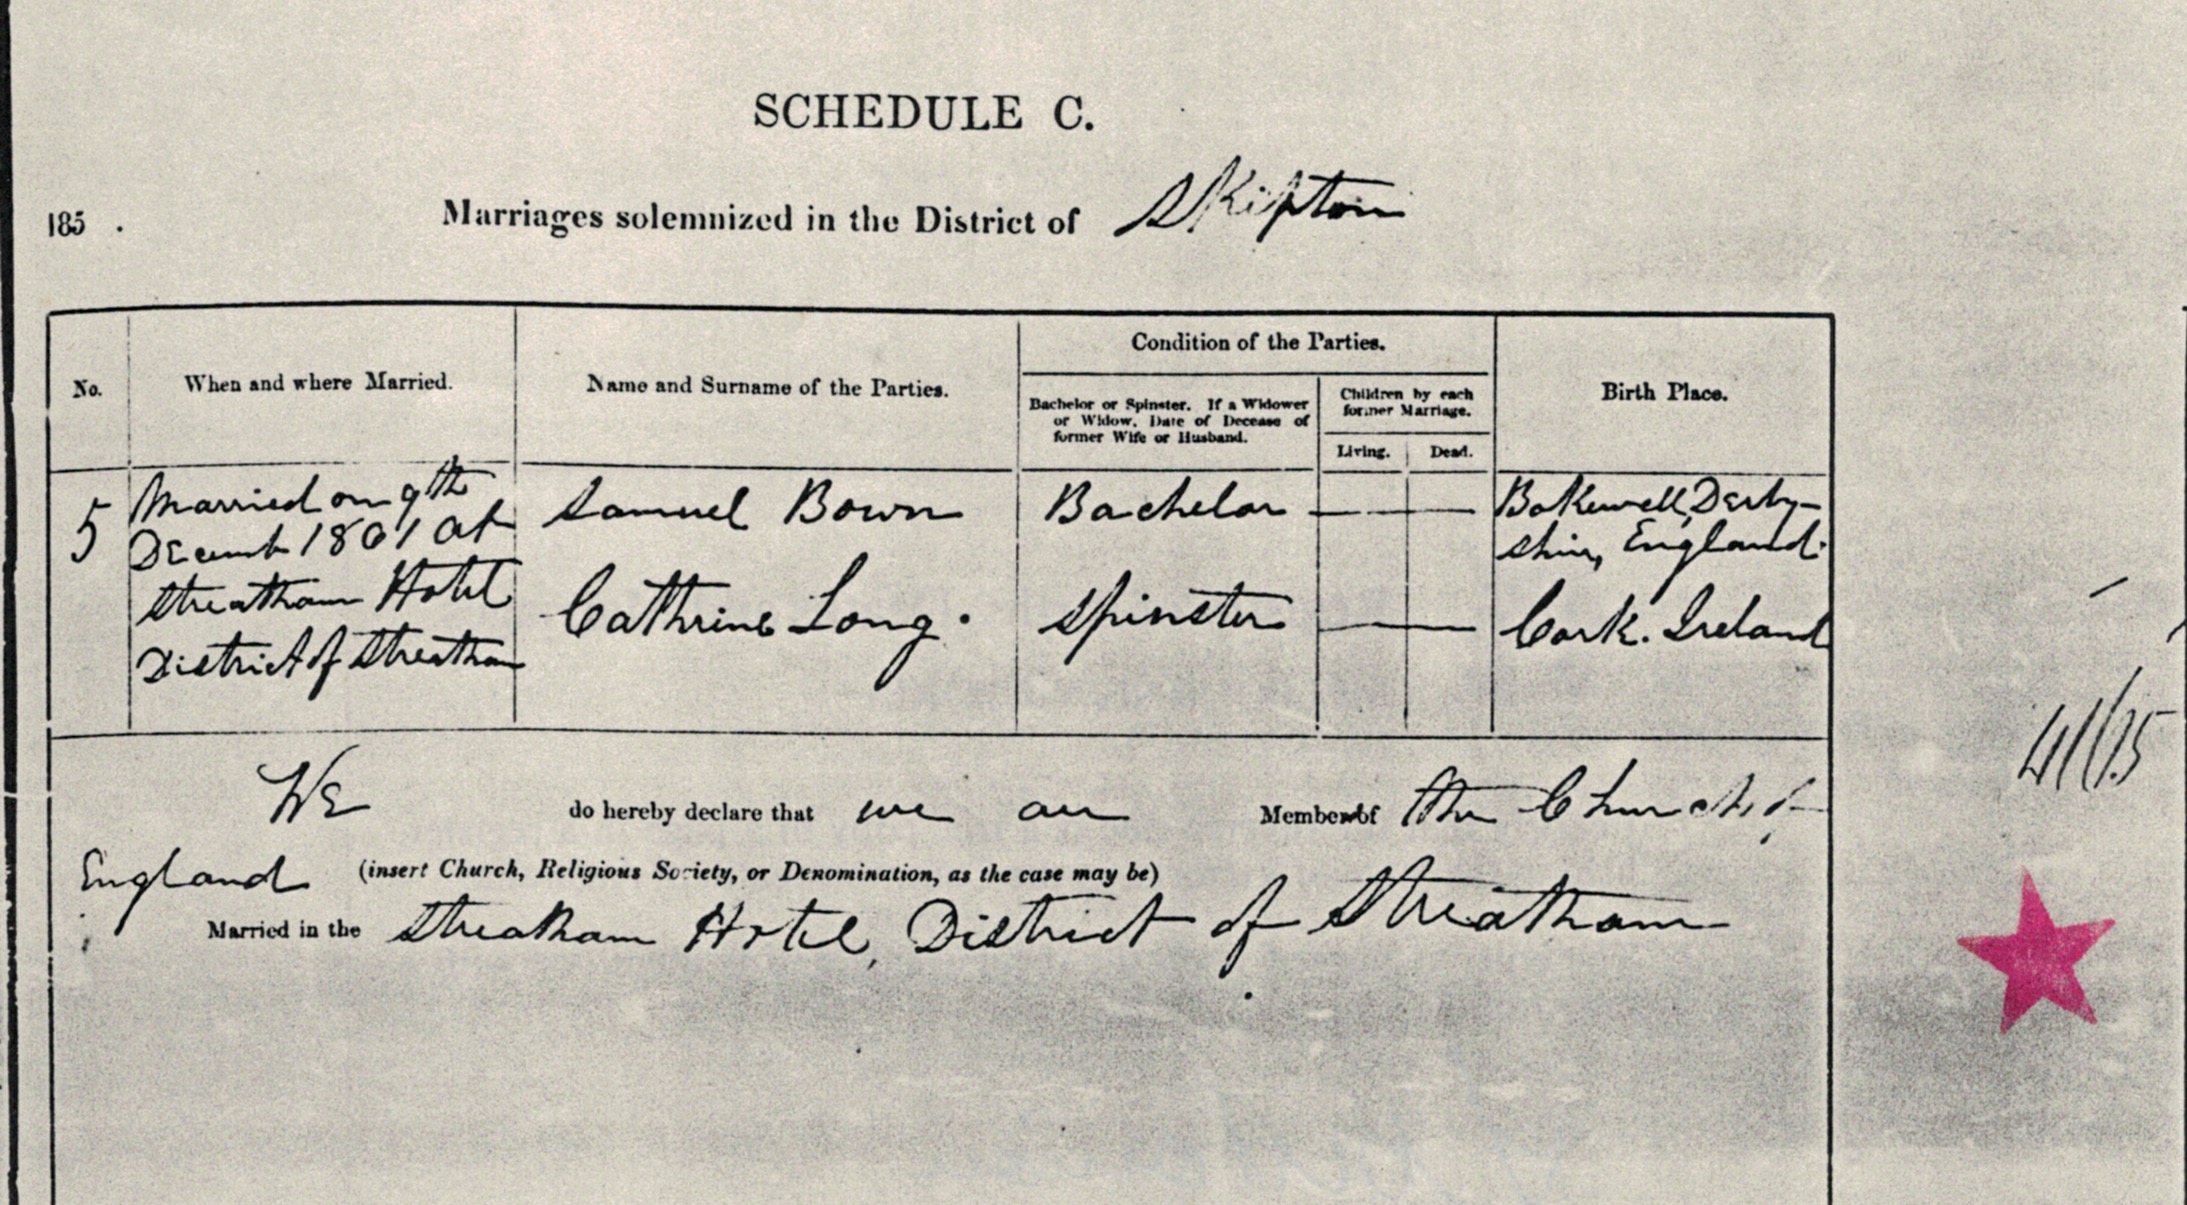 SCHEDULE C.
185 .
Marriages solemnized in the District of Skipton
No.
When and where Married.
Name and Surname of the Parties.
Condition of the Parties.
Bachelor or Spinster. If a Widower
or Widow, Date of Decease of
former Wife or Husband.
Children by each
former Marriage.
Living.
Dead.
Birth Place.
5
Married on 9th
Decemb 1861 at
Streatham Hotel
District of Streatham
Samuel Bown
Cathrine Long.
Bachelor
Spinster
Bakewell, Derby-
shire, England.
Cork. Ireland
We do hereby declare that we are Members of the Church of
England (insert Church, Religious Society, or Denomination, as the case may be)
Married in the Streatham Hotel, District of Streatham